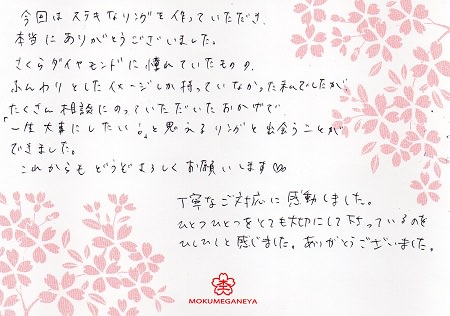 今回はステキなリングを作っていただき、
本当にありがとうございました。
さくらダイヤモンドに憧れていたものの、
ふんわりとしたイメージしか持っていなかった私でしたが、
たくさん相談にのっていただいたおかげで、
「一生大事にしたい!」と思えるリングと出会うことが
できました。
これからもどうぞよろしくお願いします♡
丁寧なご対応に感動しました。
ひとつひとつをとても大切にして下さっているのを
ひしひしと感じました。ありがとうございました。
MOKUMEGANEYA